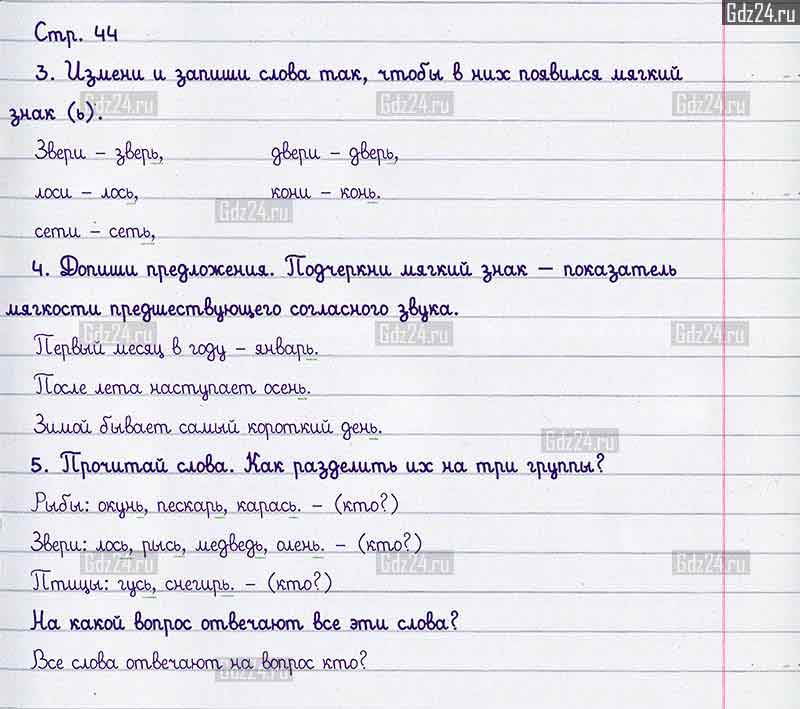 Gdz24.ru
Стр. 44
3. Измени и запиши слова так, чтобы в них появился мягкий
Gdz24.ru Gdz24.ru Gdz24.ru
знак (ь).
Звери – зверь, двери – дверь,
лоси – лось, кони – конь.
Gdz24.ru
сети – сеть,
4. Допиши предложения. Подчеркни мягкий знак – показатель
мягкости предшествующего согласного звука.
Gdz24.ru Gdz24.ru Gdz24.ru
Первый месяц в году – январь.
После лета наступает осень.
Зимой бывает самый короткий день.
Gdz24.ru
5. Прочитай слова. Как разделить их на три группы?
Рыбы: окунь, пескарь, карась. – (кто?)
Звери: лось, рысь, медведь, олень. – (кто?)
Gdz24.ru Gdz24.ru Gdz24.ru
Птицы: гусь, снегирь. – (кто?)
На какой вопрос отвечают все эти слова?
Все слова отвечают на вопрос кто?
Gdz24.ru